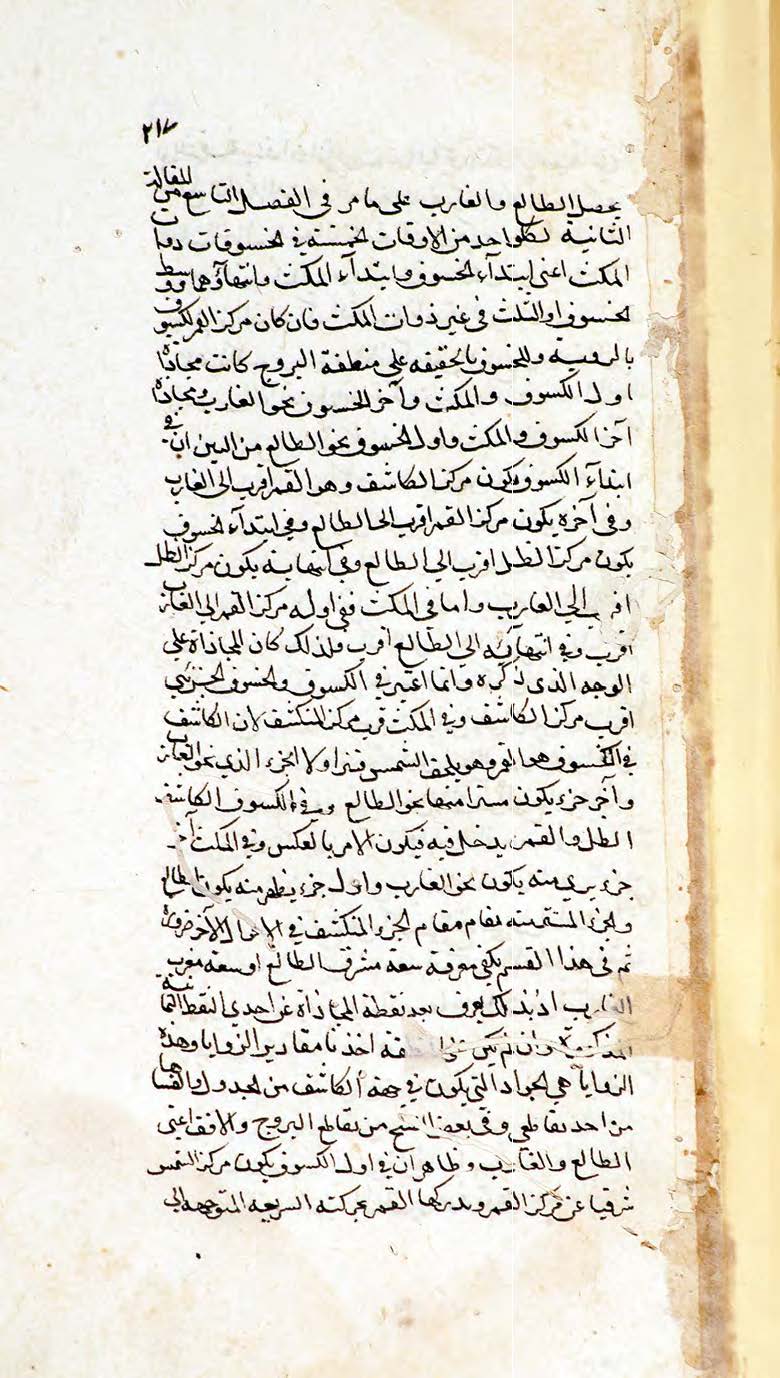 ٢١٧
يحصل الطالع والغارب على ما مر في الفصل التاسع من المقالة
الثانية لكلواحد من الاوقات الخمسة في الخسوفات ذوات
المكث اعنى ابتدآء الخسوف وابتدآء المكث وانتهاؤهما ووسط
الخسوف او الثلث في غير ذوات المكث فان كان مركز القمر لكسوف
بالروية وللخسوف بالحقيقه على منطقة البروج كانت محاذاة
اول الكسوف والمكث وآخر الخسوف نحو الغارب ومحاذاة
آخر الكسوف والمكث واول الخسوف نحو الطالع من البين ان في
ابتدآء الكسوف يكون مركز الكاشف وهو القمر اقرب الى الغارب
وفي آخره يكون مركز القمر اقرب الى الطالع وفي ابتدآء الخسوف
يكون مركز الظل اقرب الي الطالع وفي انتهائه يكون مركز الظل
اقرب الي الغارب واما في المكث ففي اوله مركز القمر الى الغارب
اقرب وفي انتهآئه الي الطالع اقرب ولذلك كان المحاذاة علي
الوجه الذى ذكره وانما اعتبر في الكسوف والخسوف الجزئي
اقرب مركز الكاشف وفي المكث قرب مركز المنكشف لان الكاشف
في الكسوف هو القمر وهو يلحق الشمس فيستر اولا الجزء الذي نحو الغارب
وآخر جزء يكون مسترا منها نحو الطالع وفي الكسوف الكاشف
الظل والقمر يدخل فيه فيكون الامر بالعكس وفي المكث آخر
جزء يرى منه يكون نحو الغارب واول جزء يظهر منه يكون الطالع
والجزء المستتر منه مقام الجزء المنكشف في الاحوال الآخر ضرورة
ثم في هذا القسم يكفى معرفة سعة مشرق الطالع او سعة مغرب
الغارب اذ بذلك يعرف بعد نقطة المحاذاة عن احدي النقط الثمانية
المذكورة وان لم يكن على اخذنا مقادير الزوايا وهذه
الزوايا هي الجواد التي يكون في جهة الكاشف من الجدول والقسا ها
من احد تقاطعي وفي بعض النسخ من تقاطع البروج والافق اعنى
الطالع والغارب وظاهر ان في اول الكسوف يكون مركز الشمس
شرقيا عن مركز القمر ويدركها القمر بحركته السريعه المتوجهه الى